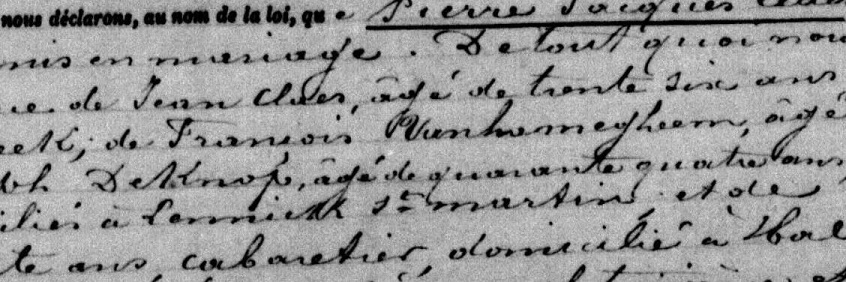 nous déclarons, au nom de la loi, que Pierre Jacques
unis en mariage. De tout quoi nou
de Jean Claes, âgé de trente six ans
eek, de François Vanhomegheem, âgé
ph DeKnop, âgé de quarante quatre ans,
iliés à Lennick St martin, et de
te ans, cabaretier, domicilié à Hal